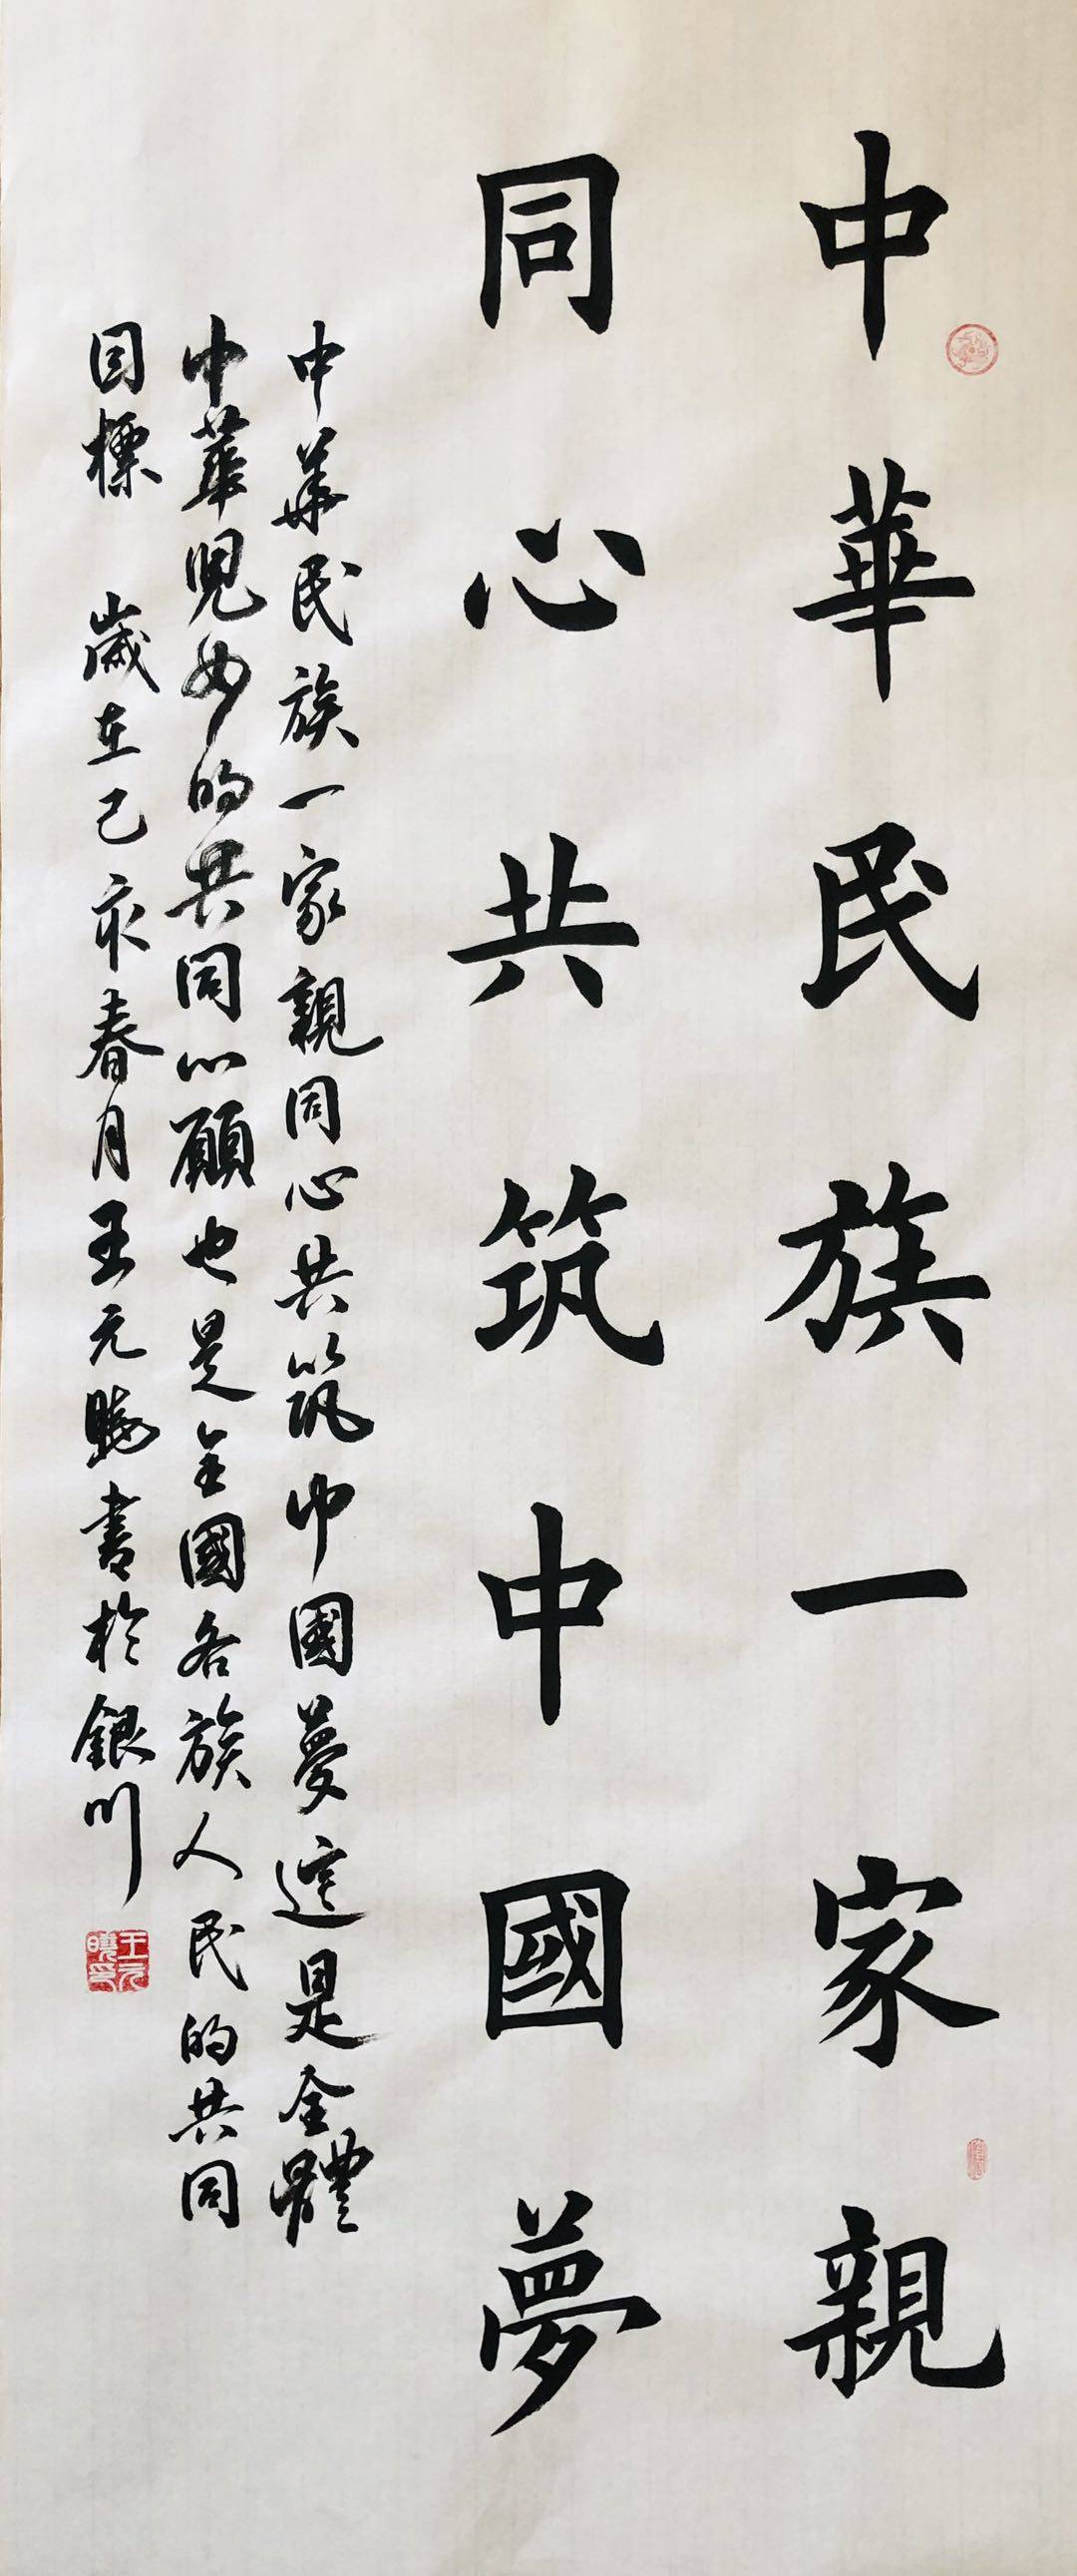 中華民族一家親
同心共筑中國夢
中華民族一家親同心共筑中國夢這是全體
中華兒女的共同心願也是全國各族人民的共同
目標 歲在己亥春月王元曉書於銀川
王元曉印